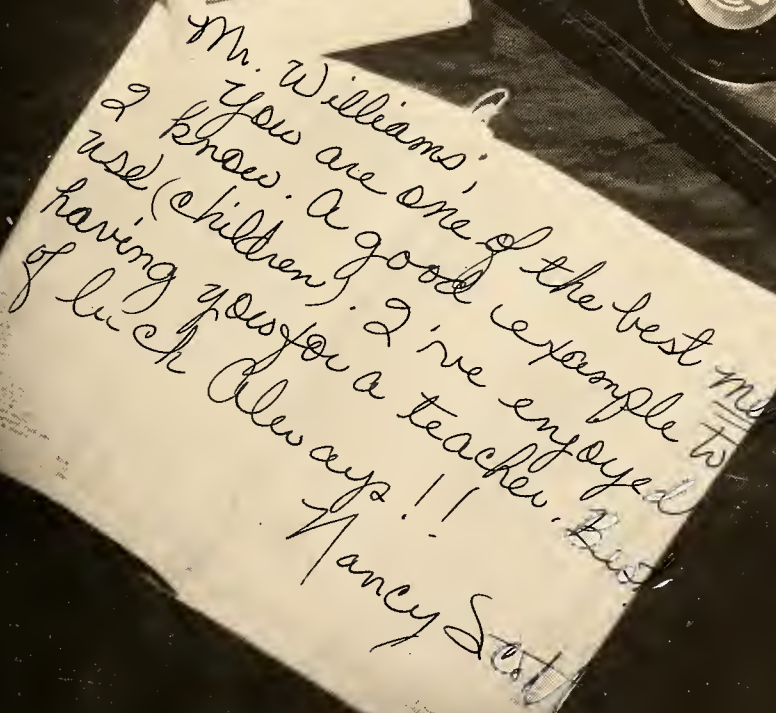 Mr. Williams;
You are one of the best me
I know. A good example to
use (children). I've enjoyed
having you for a teacher. Best
of luck Always!!
Nancy Scott